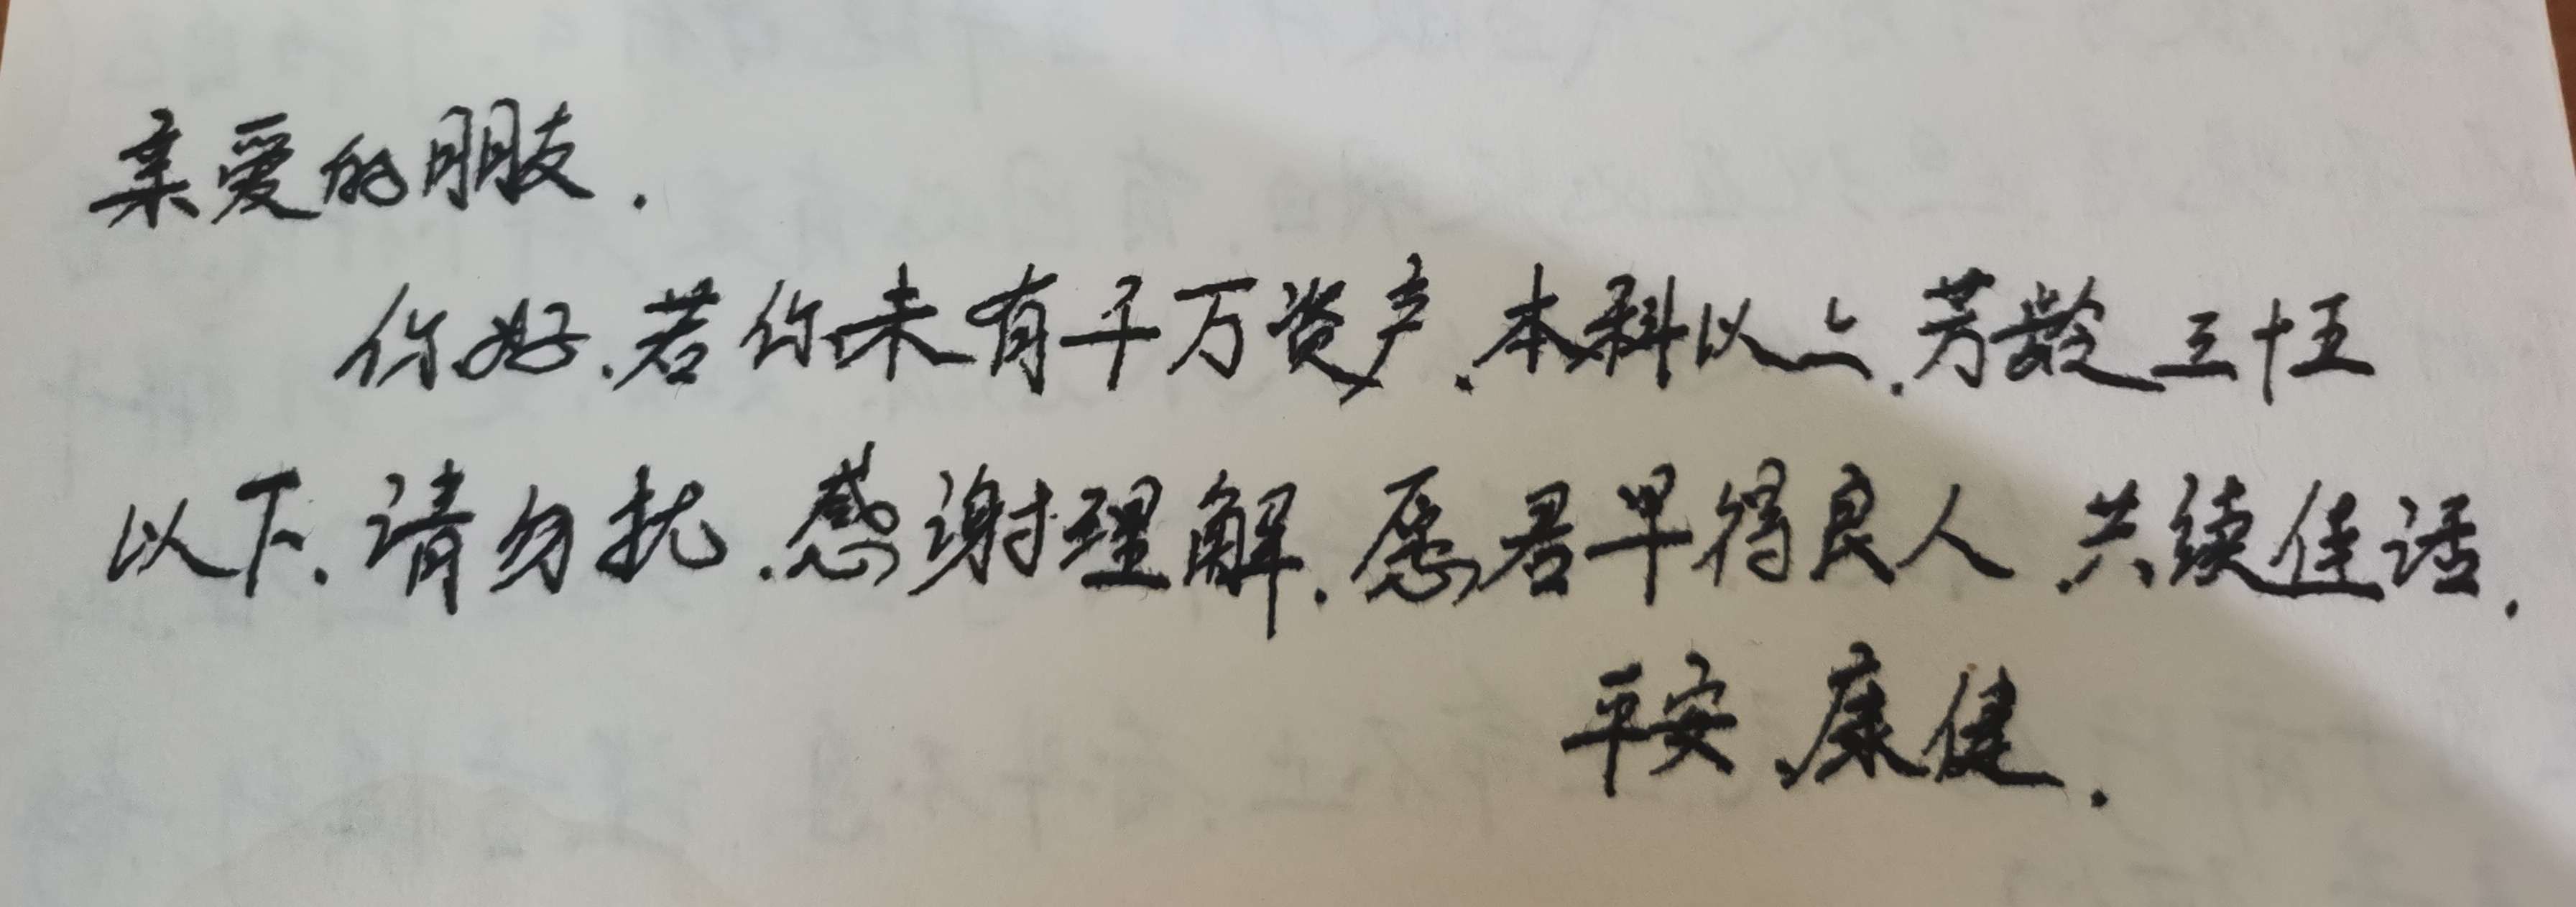 亲爱的朋友.
你好.若你未有千万资产.本科以上.芳龄三十五
以下.请勿扰.感谢理解.愿君早得良人.共续佳话.
平安.康健.